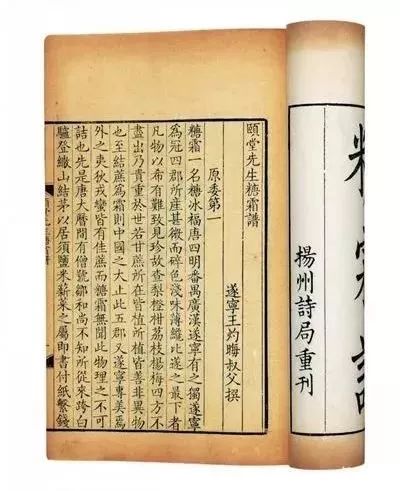 揚州詩局重刊
頤堂先生糖霜譜
遂寧王灼晦叔父撰
原委第一
糖霜一名糖冰福唐四明番禺廣漢遂寧有之獨遂寧
為冠四郡所產甚微而碎色淺味薄纔比遂之最下者
凡物以希有難致見珍故查梨橙柑荔枝楊梅四方不
盡出乃貴重於世若甘蔗所在皆植所植皆善非異物
也至結蔗為霜則中國之大止此五郡又遂寧專美焉
外之夷狄戎蠻皆有佳蔗而糖霜無聞此物理之不可
詰也先是唐大曆間有僧號鄒和尚不知所從來跨白
驢登繖山結茅以居須鹽米薪菜之屬即書付紙繫錢